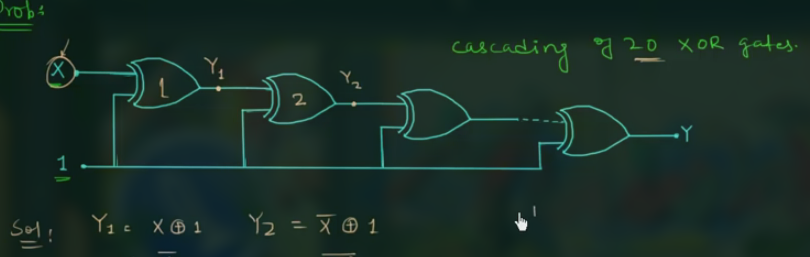 Prob:
cascading of 20 XOR gates.
X
Y₁
Y₂
1
2
Y
1
Sol: Y₁ = X ⊕ 1 Y₂ = X̅ ⊕ 1